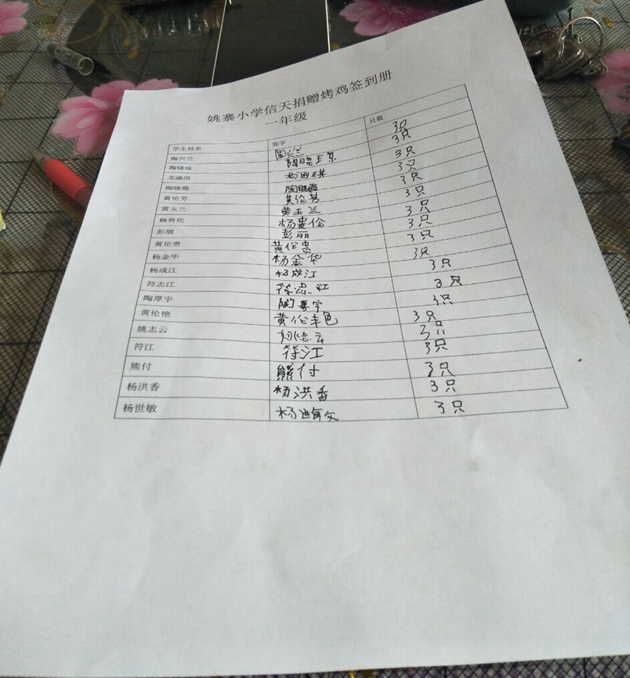 姚寨小学信天捐赠烤鸡签到册
一年级
学生姓名 签字 只数
陶兴兰 3只
陶晓琼 3只
龙涵琪 3只
陶晓薇 陶晓薇 3只
黄伦芳 黄伦芳 3只
黄玉兰 黄玉兰 3只
杨贵伦 杨贵伦 3只
彭丽 彭丽 3只
黄伦贵 黄伦贵 3只
杨金华 杨金华 3只
杨成江 杨成江 3只
符志江 符志江 3只
陶厚宇 3只
黄伦艳 黄伦艳 3只
姚志云 姚志云 3只
符江 符江 3只
熊付 熊付 3只
杨洪香 杨洪香 3只
杨世敏 3只